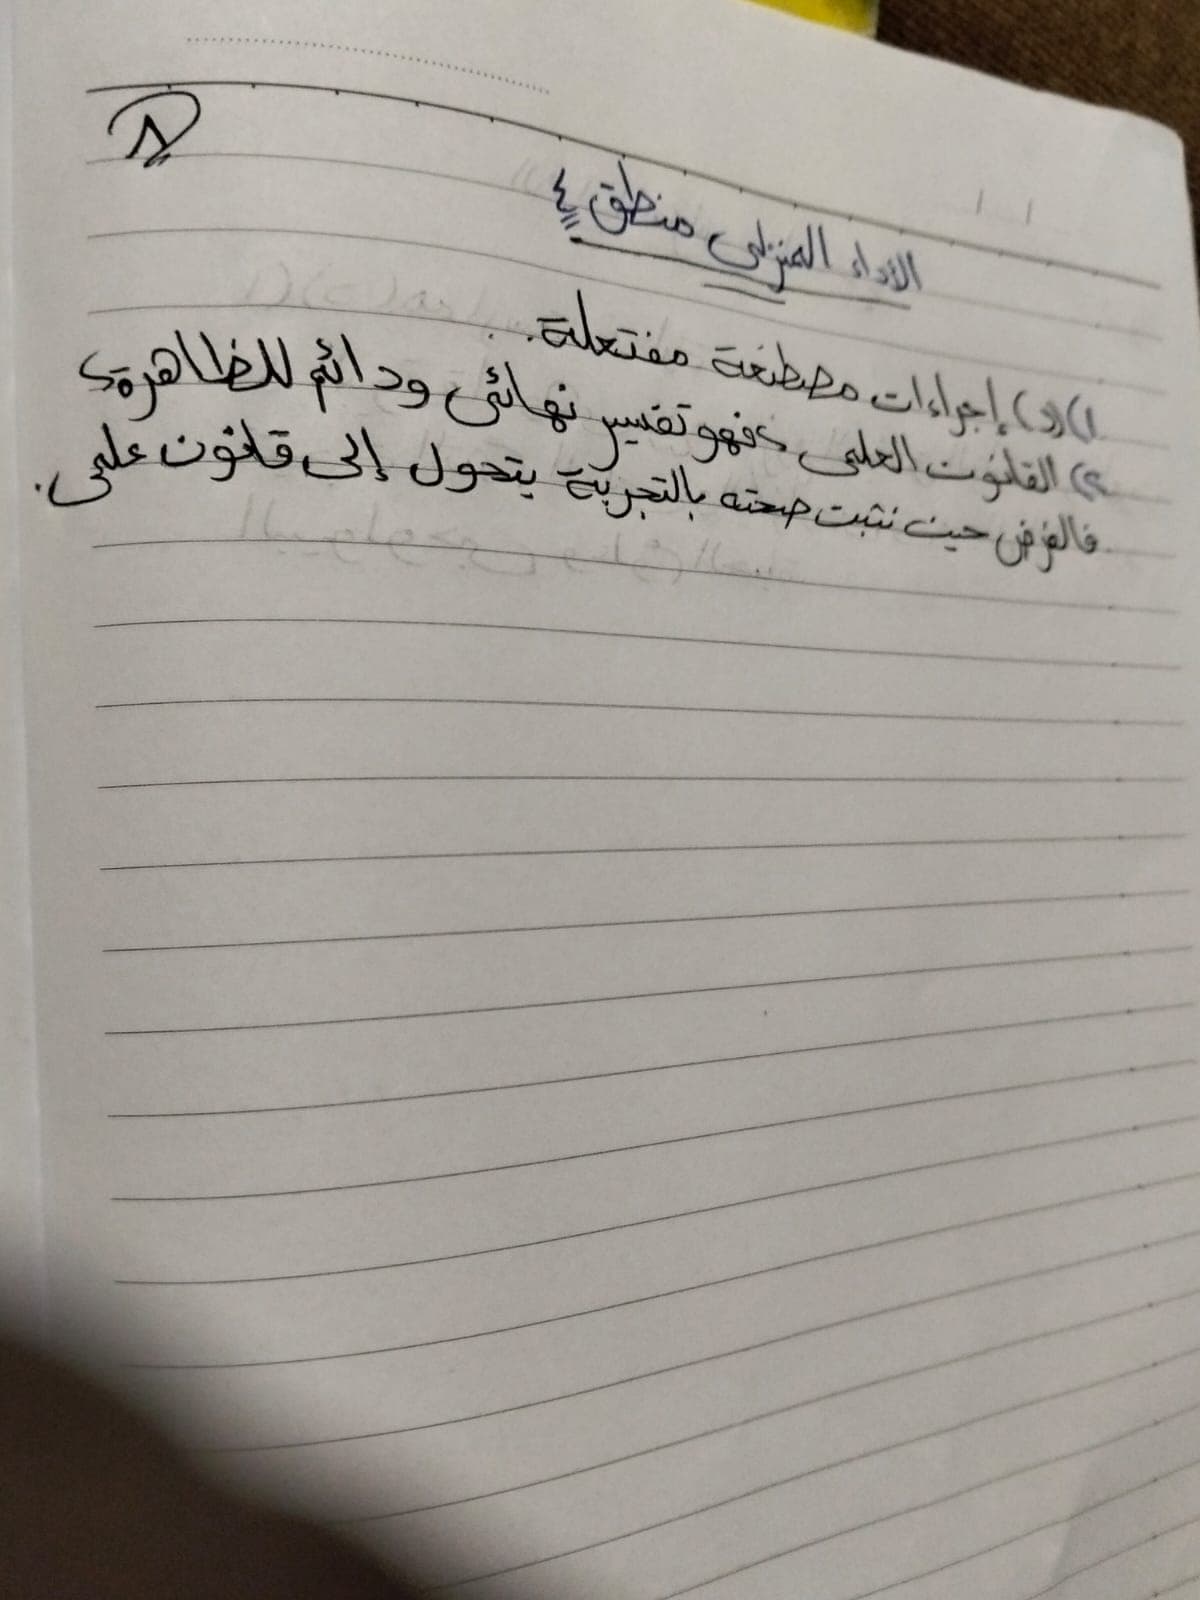 ٨
الأداء المنزلى منطق ٤
١) (د) إجراءات مصطنعة مفتعلة.
٢) القانون العلمى، فهو تفسير نهائى ودائم للظاهرة،
فالفرض حين نثبت صحته بالتجربة يتحول إلى قانون علمى.